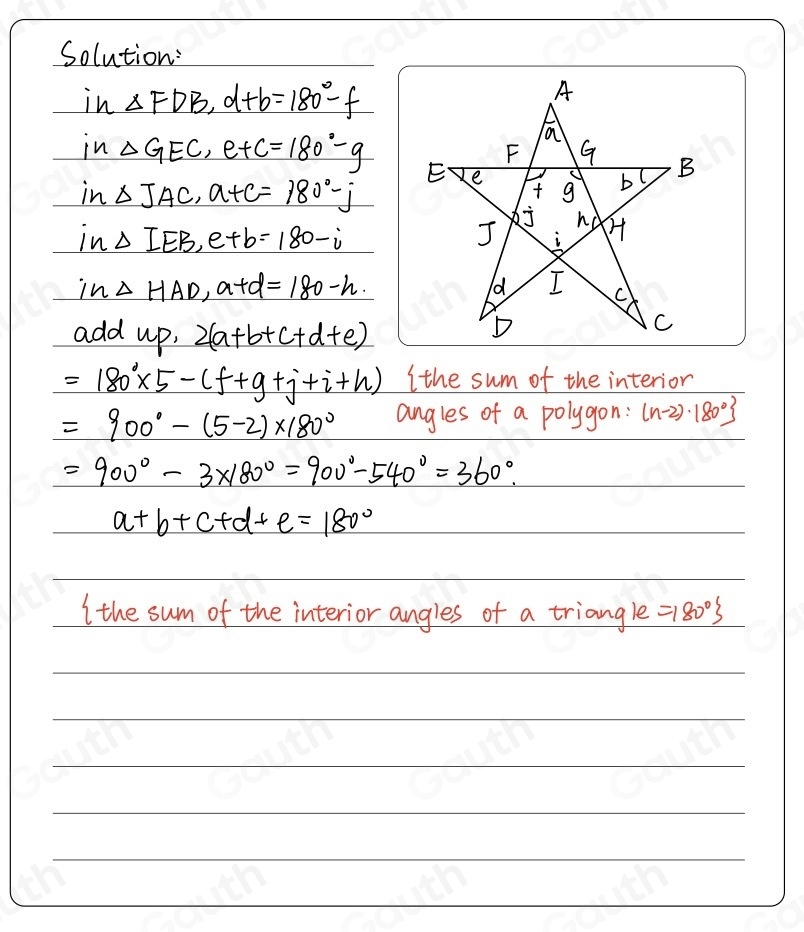 Solution:
in △FDB, d+b=180°-f
in △GEC, e+c=180°-g
in △JAC, a+c=180°-j
in △IEB, e+b=180-i
in △HAD, a+d=180-h.
add up, 2(a+b+c+d+e)
= 180°×5-(f+g+j+i+h)
{the sum of the interior
angles of a polygon: (n-2)·180°}
= 900° - (5-2)×180°
= 900° - 3×180° = 900°-540° = 360°.
a+b+c+d+e=180°
{the sum of the interior angles of a triangle =180°}
A
a
F G
E e f g b B
J j h H
i
d I c
D C
Gauth